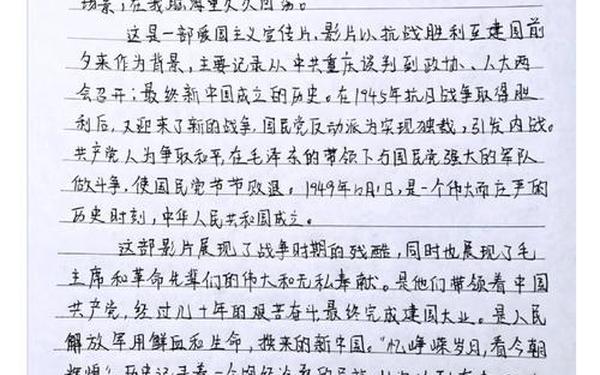 场景，在我脑海里久久回荡。
这是一部爱国主义宣传片，影片以抗战胜利至建国前
夕来作为背景，主要记录从中共重庆谈判到政协、人大两
会召开；最终新中国成立的历史。在1945年抗日战争取得胜
利后，又迎来了新的战争，国民党反动派为实现独裁，引发内战。
共产党人为争取和平，在毛泽东的带领下与国民党强大的军队
做斗争，使国民党节节败退。1949年10月1日，是一个伟大而庄严的
历史时刻，中华人民共和国成立。
这部影片展现了战争时期的残酷，同时也展现了毛
主席和革命先辈们的伟大和无私奉献。是他们带领着中国
共产党，经过几十年的艰苦奋斗最终完成建国大业。是人民
解放军用鲜血和生命，换来的新中国。“忆峥嵘岁月，看今朝
辉煌”历史记录着一个